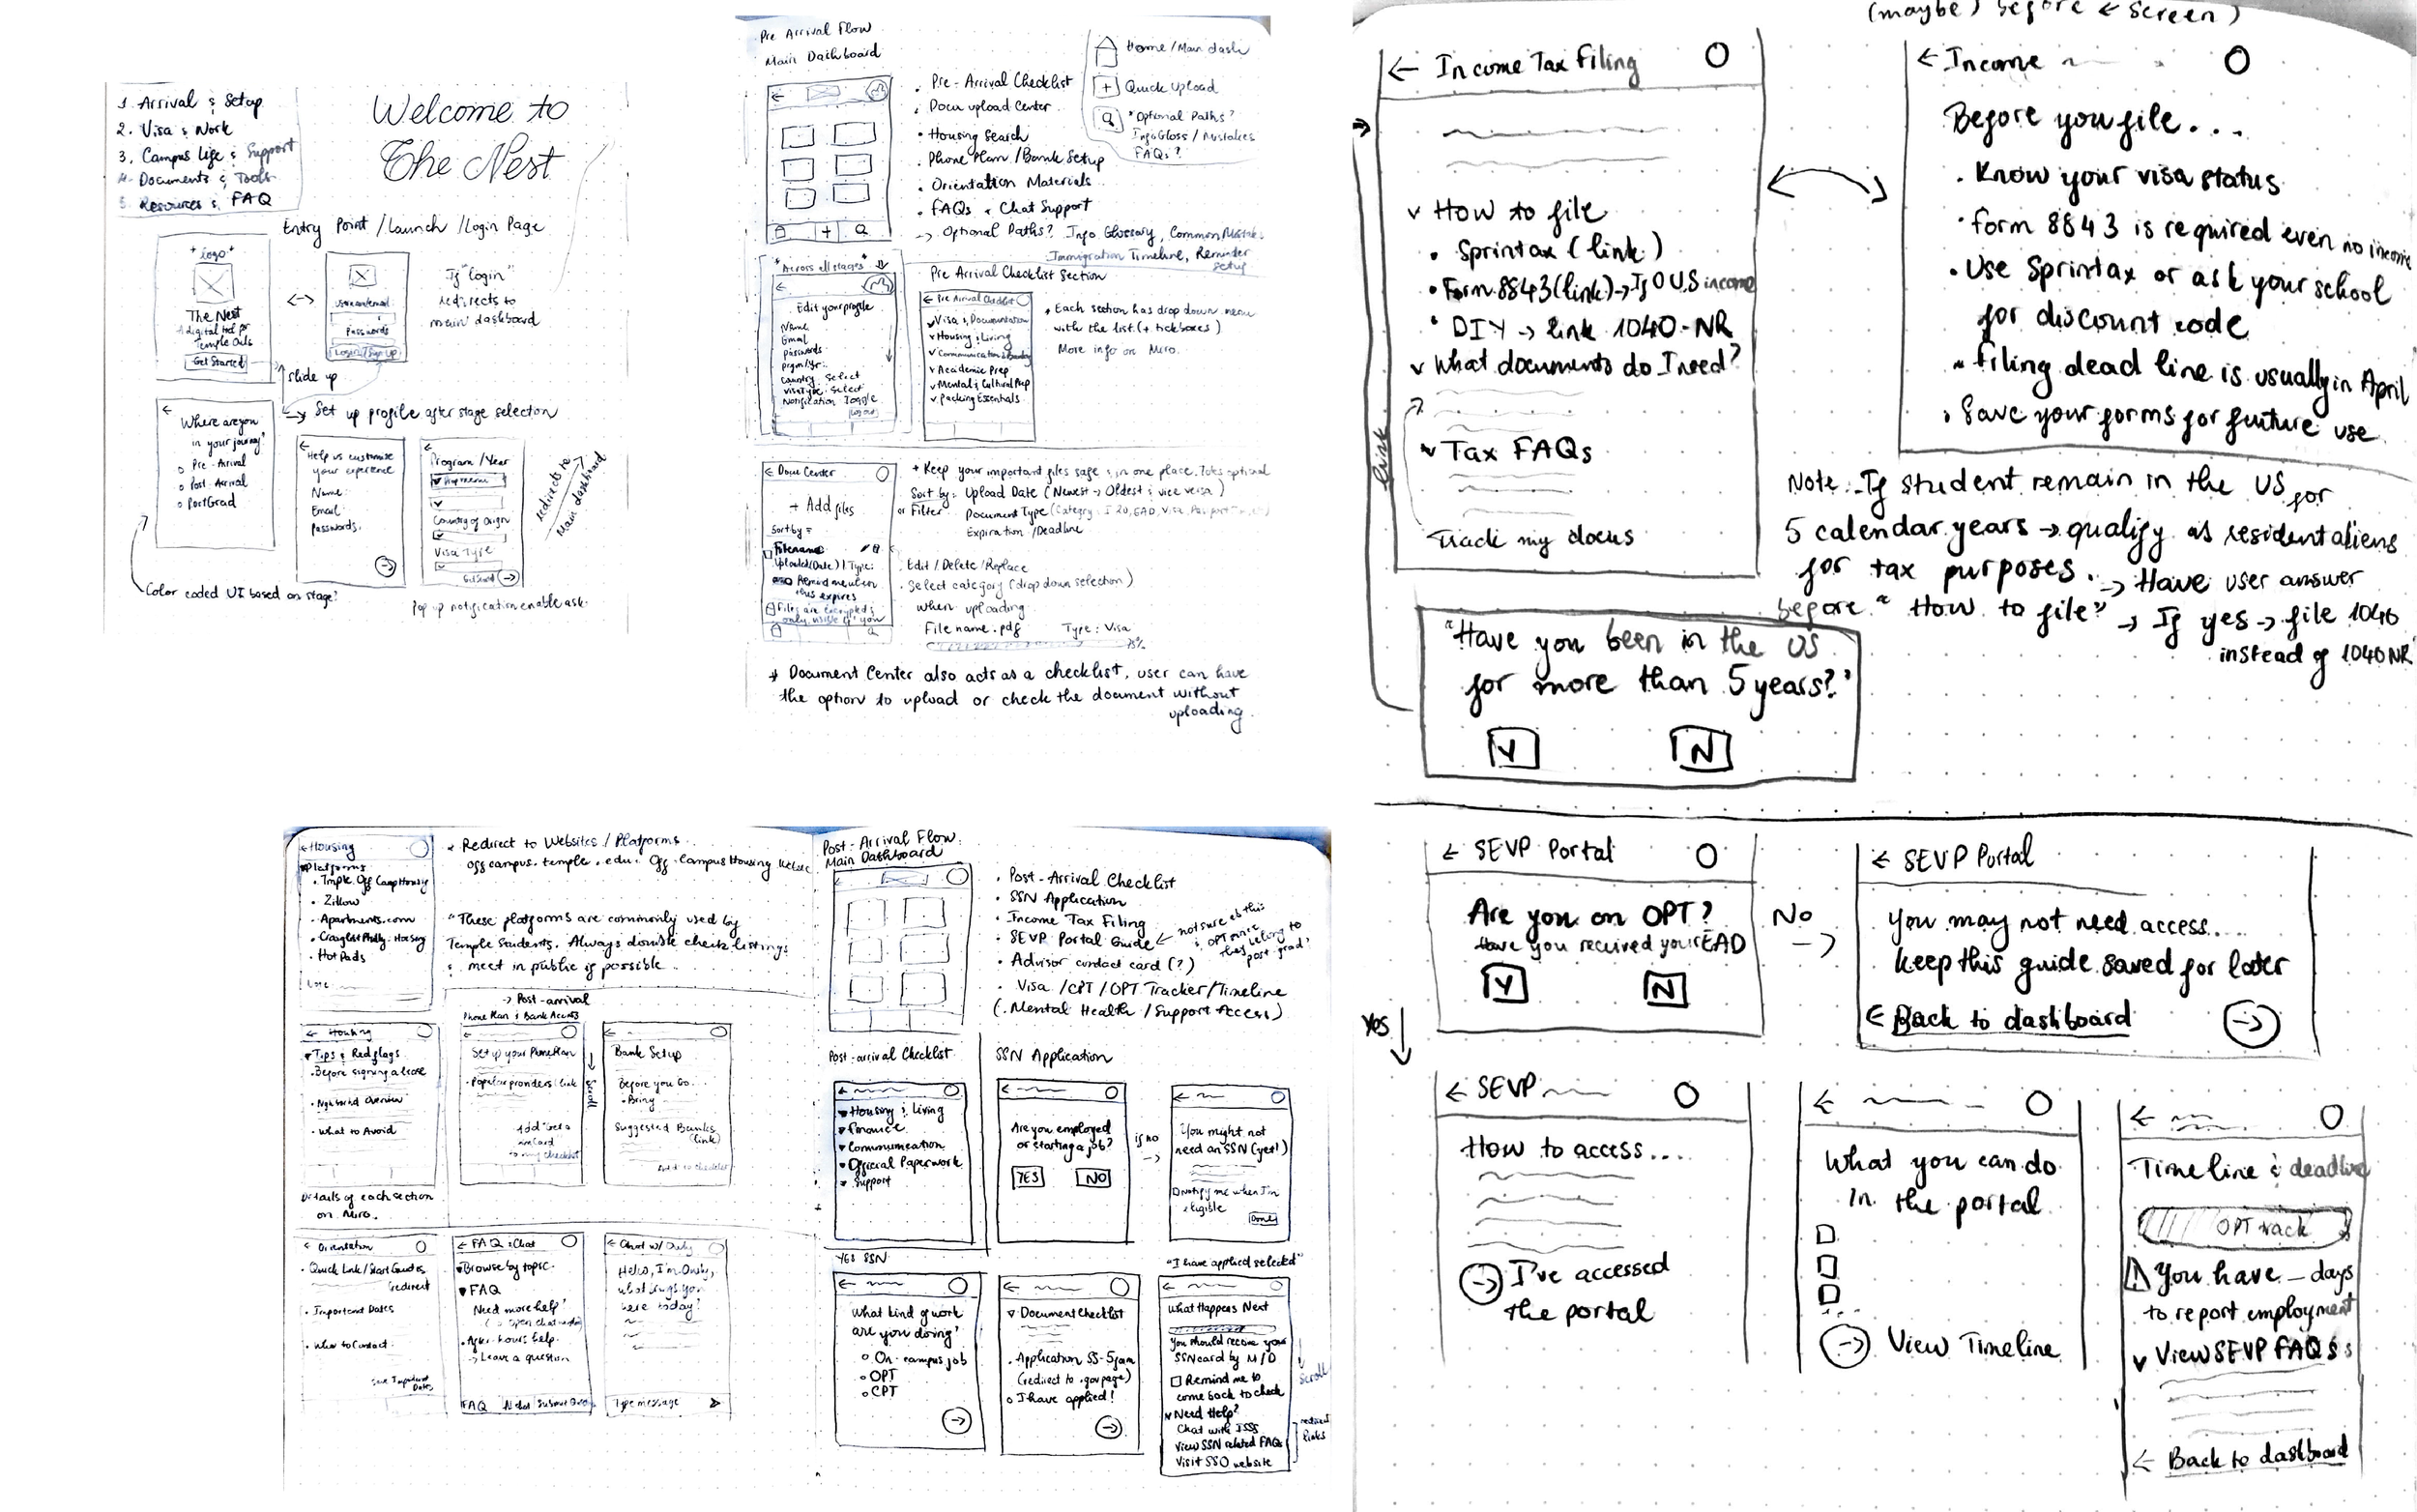 1. Arrival & Setup
2. Visa & Work
3. Campus Life & Support
4. Documents & Tools
5. Resources & FAQ
Welcome to
The Nest
Entry Point / Launch / Login Page
*logo*
The Nest
A digital tool for
Temple Owls
Get Started
Passwords
Login/Sign up
If "login"
redirects to
main dashboard
slide up
Set up profile after stage selection
Where are you
in your journey?
Pre-Arrival
Post-Arrival
PostGrad
Help us customize
your experience
Name:
Email:
Passwords:
Program / Year
Country of Origin
Visa Type
Get Started
redirects to
Main dashboard
Color coded UI based on stage?
Pop up notification enable ask.
Pre Arrival Flow
Main Dashboard
• Pre-Arrival Checklist
• Docu upload Center
• Housing Search
• Phone Plan / Bank Setup
• Orientation Materials
• FAQs & Chat Support
→ Optional Paths? Info Glossary, Common Mistakes
Immigration Timeline, Reminder
setup
Home / Main dash
+ Quick Upload
"Optional Paths?
Info Gloss / Mistakes
FAQs?
*Across all stages*
Edit your profile
Name
Email
Passwords
Country: Select
Visa Type: Select
Notification Toggle
Log out
Pre Arrival Checklist Section
← Pre Arrival Checklist
Visa & Documentation
Housing & Living
Communication & Banking
Academic Prep
Mental & Cultural Prep
Packing Essentials
* Each section has drop down menu
with the list (+ tickboxes)
More info on Miro.
← Docu Center
+ Add files
Sort by =
Filename
Upload (Date) | Type:
Remind me when
this expires
Files are encrypted &
only visible to you
+ Keep your important files safe & in one place.
Sort by: Upload Date (Newest → Oldest & vice versa)
or Filter Document Type (Category: I 20, EAD, Visa, Passport
Expiration / Deadline
Edit / Delete / Replace
Select category (drop down selection)
when uploading
File name.pdf Type: Visa
* Document Center also acts as a checklist, user can have
the option to upload or check the document without
uploading.
(maybe) before ← screen)
← Income Tax Filing
How to file
• Sprintax (link)
• Form 8843 (link) → If 0 U.S income
• DIY → link 1040-NR
What documents do I need?
Tax FAQs
Track my docus
link
← Income
Before you file...
• Know your visa status
• Form 8843 is required even no income
• Use Sprintax or ask your school
for discount code
• Filing dead line is usually in April
• Save your forms for furture use.
Note: If student remain in the US for
5 calendar years → qualify as resident aliens
for tax purposes. → Have user answer
before "How to file" → If yes → file 1040
instead of 1040 NR
"Have you been in the US
for more than 5 years?"
Y N
← Housing
Platforms
• Zillow
• Apartments.com
• HotPads
• Redirect to Websites / Platforms
off campus. temple. edu: Off-Campus Housing
"These platforms are commonly used by
Temple Students. Always double check listings
& meet in public if possible
← Housing
Tips & Redflags
• Before signing a lease
• What to Avoid
Details of each section
on Miro.
→ Post-arrival
Phone Plan & Bank Access
Set up your Phone Plan
• Popular providers link
Scroll
Bank Setup
Before you Go...
• Bring
Suggested Banks
(link)
Add to checklist
← Orientation
• Quick Link / Start Guides
(redirect
• Important Dates
• Who to Contact
Save Important
Dates
← FAQ & Chat
Browse by topic
FAQ
Need more help?
After hours help
→ Leave a question
FAQ
← Chat w/ Owly
Hello, I'm Owly,
what brings you
here today?
Type message
Post-Arrival Flow
Main Dashboard
• Post-Arrival Checklist
• SSN Application
• Income Tax Filing
• SEVP Portal Guide
• Advisor contact card (?)
• Visa / CPT / OPT Tracker / Timeline
(. Mental Health / Support Access)
Post-arrival Checklist
Housing & Living
Finance
Communication
Official Paperwork
Support
SSN Application
Are you employed
or starting a job?
YES NO
if no
You might not
need an SSN (yet!)
Notify me when I'm
eligible
Done
Yes SSN
What kind of work
are you doing?
On-campus job
OPT
CPT
Document Checklist
• Application SS-5 form
(redirect to .gov page)
I have applied!
"I have applied selected"
What Happens Next
You should receive your
SSN card by M/D
Remind me to
come back to check
Need Help?
Chat with ISSS
View SSN related FAQs
Visit SSO website
scroll
links
← SEVP Portal
Are you on OPT?
Have you received your EAD
Y N
No
Yes
← SEVP Portal
You may not need access...
keep this guide saved for later
← Back to dashboard
← SEVP
How to access...
I've accessed
the portal
What you can do
in the portal
View Timeline
Timeline & deadline
OPT track
You have _ days
to report employment
View SEVP FAQs
← Back to dashboard